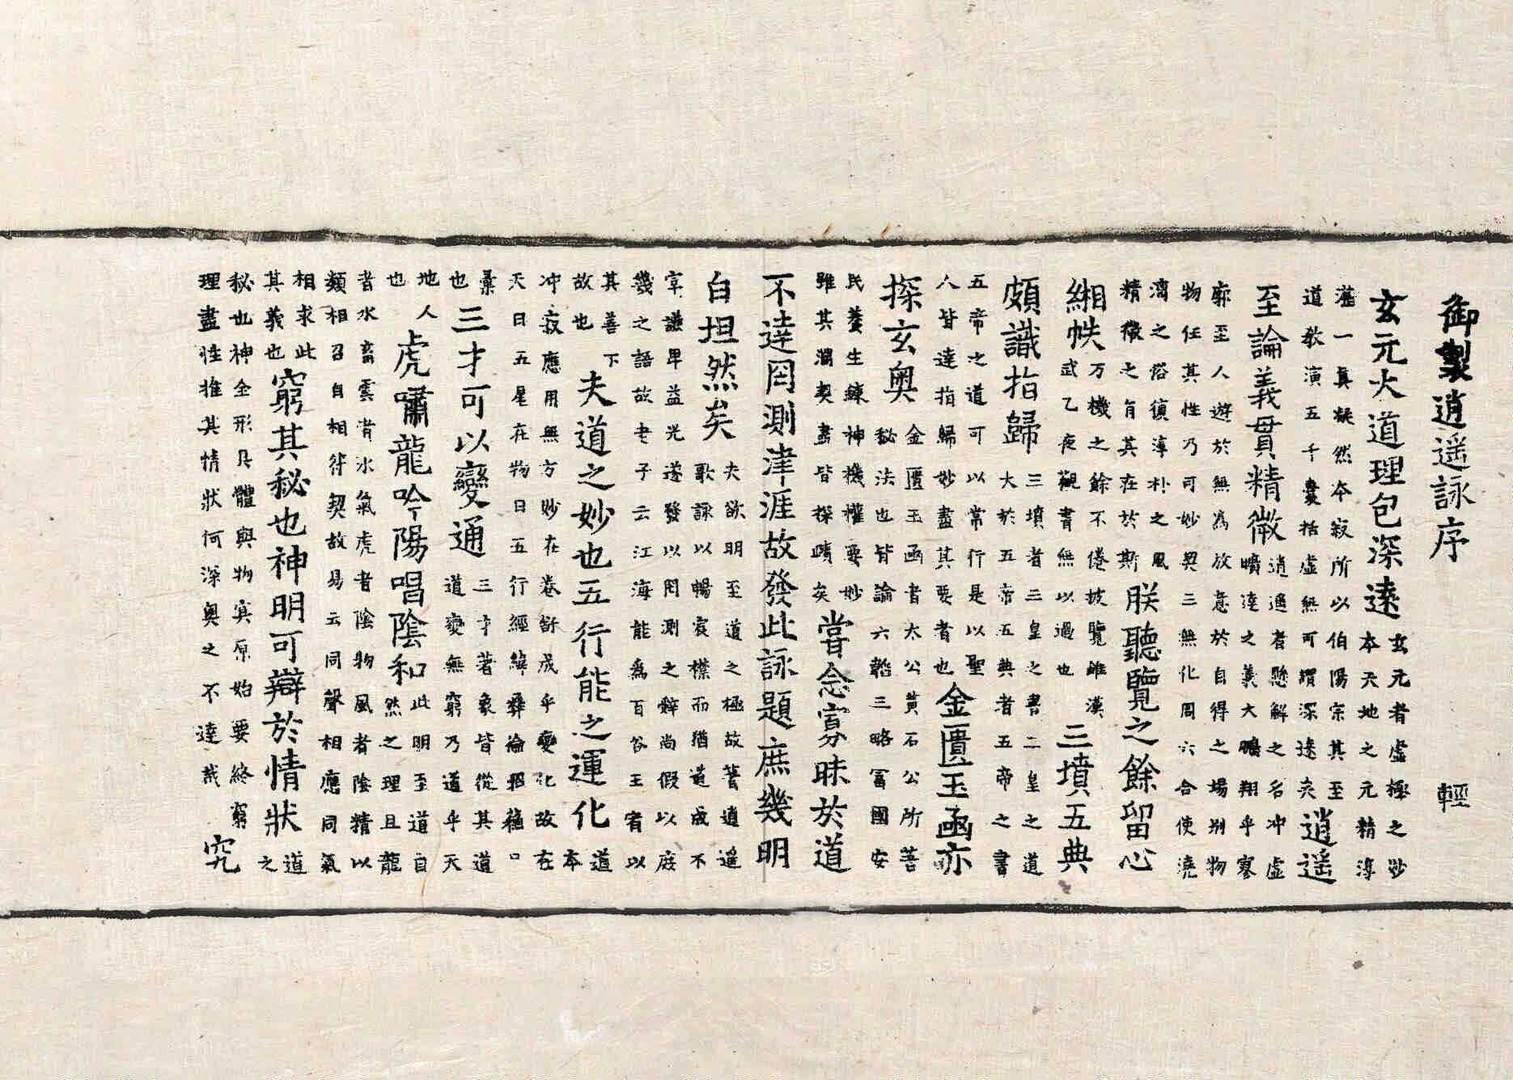 御製逍遥詠序 輕
玄元大道理包深遠
玄元者虛極之妙
本天地之元精淳
湛一真凝然夲寂所以伯陽宗其至
道教演五千囊括虛無可謂深遠矣
逍遥
至論義貫精微
逍遥者懸解之名冲虛
曠達之義大鵬翔乎寥
廓至人遊於無為放意於自得之場别物
物任其性乃可妙契三無化周六合使澆
漓之俗復淳朴之風
精徵之旨其在於斯
朕聽覽之餘留心
緗帙
万機之餘不倦披覽雖漢
武乙夜觀書無以過也
三墳五典
頗識指歸
三墳者三皇之書二皇之道
大於五帝五典者五帝之書
五帝之道可以常行是以聖
人皆達指歸妙盡其要者也
金匱玉函亦
探玄奧
金匱玉函者太公黄石公所著
秘法也皆論六韜三略富國安
民養生錬神機權要妙
雖其淵契盡皆探賾矣
嘗念寡昧於道
不達罔測津涯故發此詠題庶幾明
白坦然矣
夫欲明至道之極故著逍遥
歌詠以暢宸襟而猶道成不
宰謙卑益光遂發以罔測之辤尚假以庶
幾之語故老子云江海能為百谷王者以
其善下
故也
夫道之妙也五行能之運化
道
本
冲寂應用無方妙在卷舒成乎變化故在
天日五星在物日五行經緯彝倫
彙
也
三才可以變通
三才著象皆從其道
道變無窮乃道乎天
地人
也
虎嘯龍吟陽唱陰和
此明至道自
然之理且龍
者水畜雲者水氣虎者陰物風者陰精以
類相召自相符契故易云同聲相應同氣
相求此
其義也
窮其秘也神明可辯於情狀
道
之
秘也神全形具體與物冥原始要終窮
理盡性推其情狀何深奧之不達哉
究